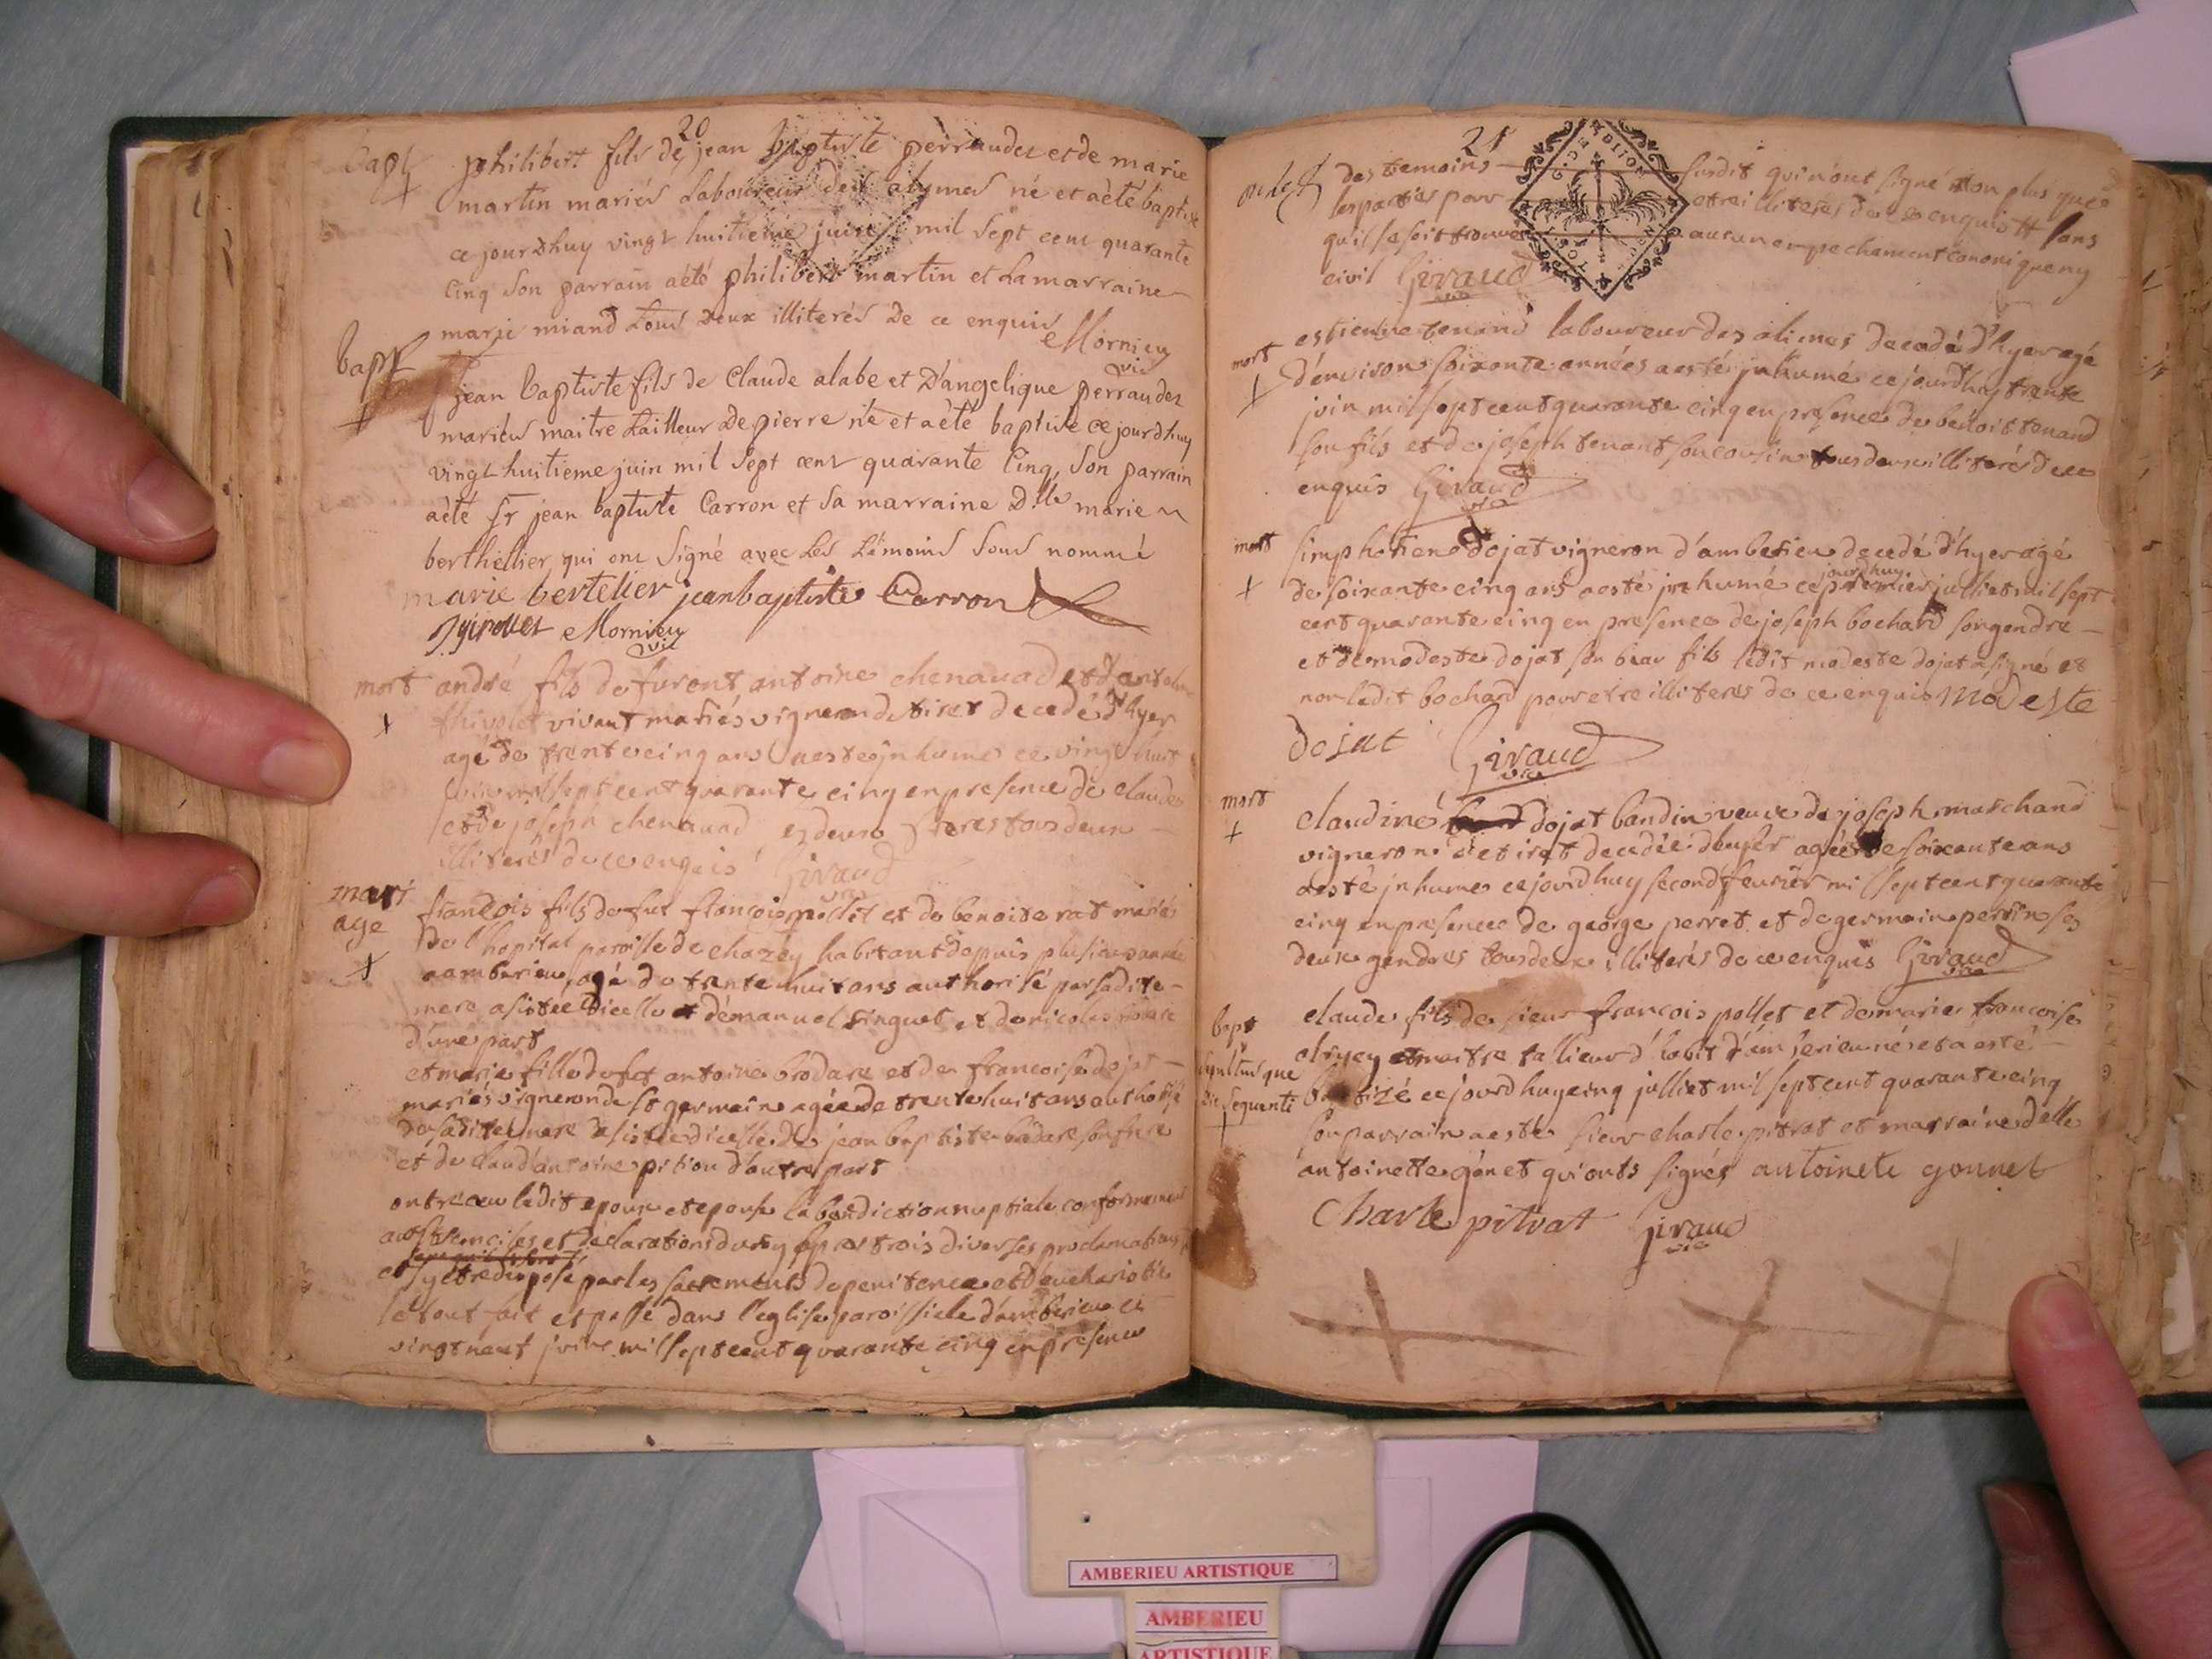 20
bapt philibert fils de jean baptiste perraudet et de marie
martin mariés Laboureur des alymes né et aèté baptisé
ce jourdhuy vingt huitieme juin mil Sept cent quarante
Cinq Son parrain aèté philibert martin et La marraine
marie miand tous Deux illiterés De ce enquis
Mornieu
vic
bapt
jean baptiste fils de Claude alabe et D'angelique perraudet
mariés maitre tailleur de pierre né et aèté baptisé ce jourdhuy
vingt huitieme juin mil Sept cent quarante Cinq, Son parrain
aèté Sr jean baptiste Carron et Sa marraine Dlle marie
berthellier qui ont Signé avec Les témoins Sous nommé
marie bertelier jean baptiste Carron
Mornieu
vic
mort andré fils de furent antoine chenavad et d'
thivolet vivant mariés vigneron de tiret decedé d'hyer
agé de trente cinq ans aesté jnhumé ce vingt huit
juin mil sept cent quarante cinq en presence de claude
et de joseph chenavad ses deux freres tous deux
illiterés de ce enquis Giraud
vic
mari
age
françois fils de fut françois et de benoite rat mariés
de l'hopital paroisse de chazey habitant depuis plusieurs années
a amberieu, agé de trente huit ans authorisé par sadite
mere assistée dicelle et d'émanuel singuet et de nicolas
d'une part
et marie fille de fut antoine brodare et de francoise dojat
mariés vigneron de st germain agée de trente huit ans authorisé
de sadite mere assistée dicelle de jean baptiste bodare son frere
et de claud'antoine pition d'autre part
ont receu ledit epoux et epouse la benediction nuptiale conformement
aux et déclarations du roy apres trois diverses proclamations
et sy etre disposé par les sacrements de penitence et d'eucharistie
le tout fait et passé dans l'eglise paroissiale d'amberieu ce
vingt neuf juin mil sept cent quarante cinq en presence
21
des temoins susdit qui n'ont signé non plus que
les parties pour etre illiterés de ce enquis sans
qu'il se soit trouvé aucun empechement canonique ny
civil Giraud
vic
mort
estienne tenand laboureur des alimes decedé d'hyer agé
d'environ soixante années aesté jnhumé ce jourdhuy trente
juin mil sept cent quarante cinq en presence de benoit tenand
son fils et de joseph tenant son cousin tous deux illiterés de ce
enquis Giraud
vic
mort
simphorien dojat vigneron d'amberieu decedé d'hyer agé
jourdhuy
de soixante cinq ans aesté jnhumé ce premier julliet mil sept
cent quarante cinq en presence de joseph bochard son gendre
et de modeste dojat son beau fils ledit modeste dojat a signé et
non ledit bochard pour etre illiteres de ce enquis modeste
dojat Giraud
vic
mort
claudine dojat bandin veuve de joseph marchand
vigneron de tiret decedée d'hyer agée de soixante ans
aesté jnhumé ce jourdhuy second feurier mil sept cent quarante
cinq en presence de george perret et de germain perrin ses
deux gendres tous deux illiterés de ce enquis Giraud
vic
bapt
claude fils de sieur françois pollet et de marie françoise
maitre tallieur d'habit d'amberieu né et a esté
baptizé ce jourdhuy cinq julliet mil sept cent quarante cinq
die sequenti
son parrain aesté sieur charle pitrat et marraine delle
antoinette gonet qui onts signés antoinete gonnet
Charle pitrat Giraud
vic
AMBERIEU ARTISTIQUE
AMBERIEU
ARTISTIQUE